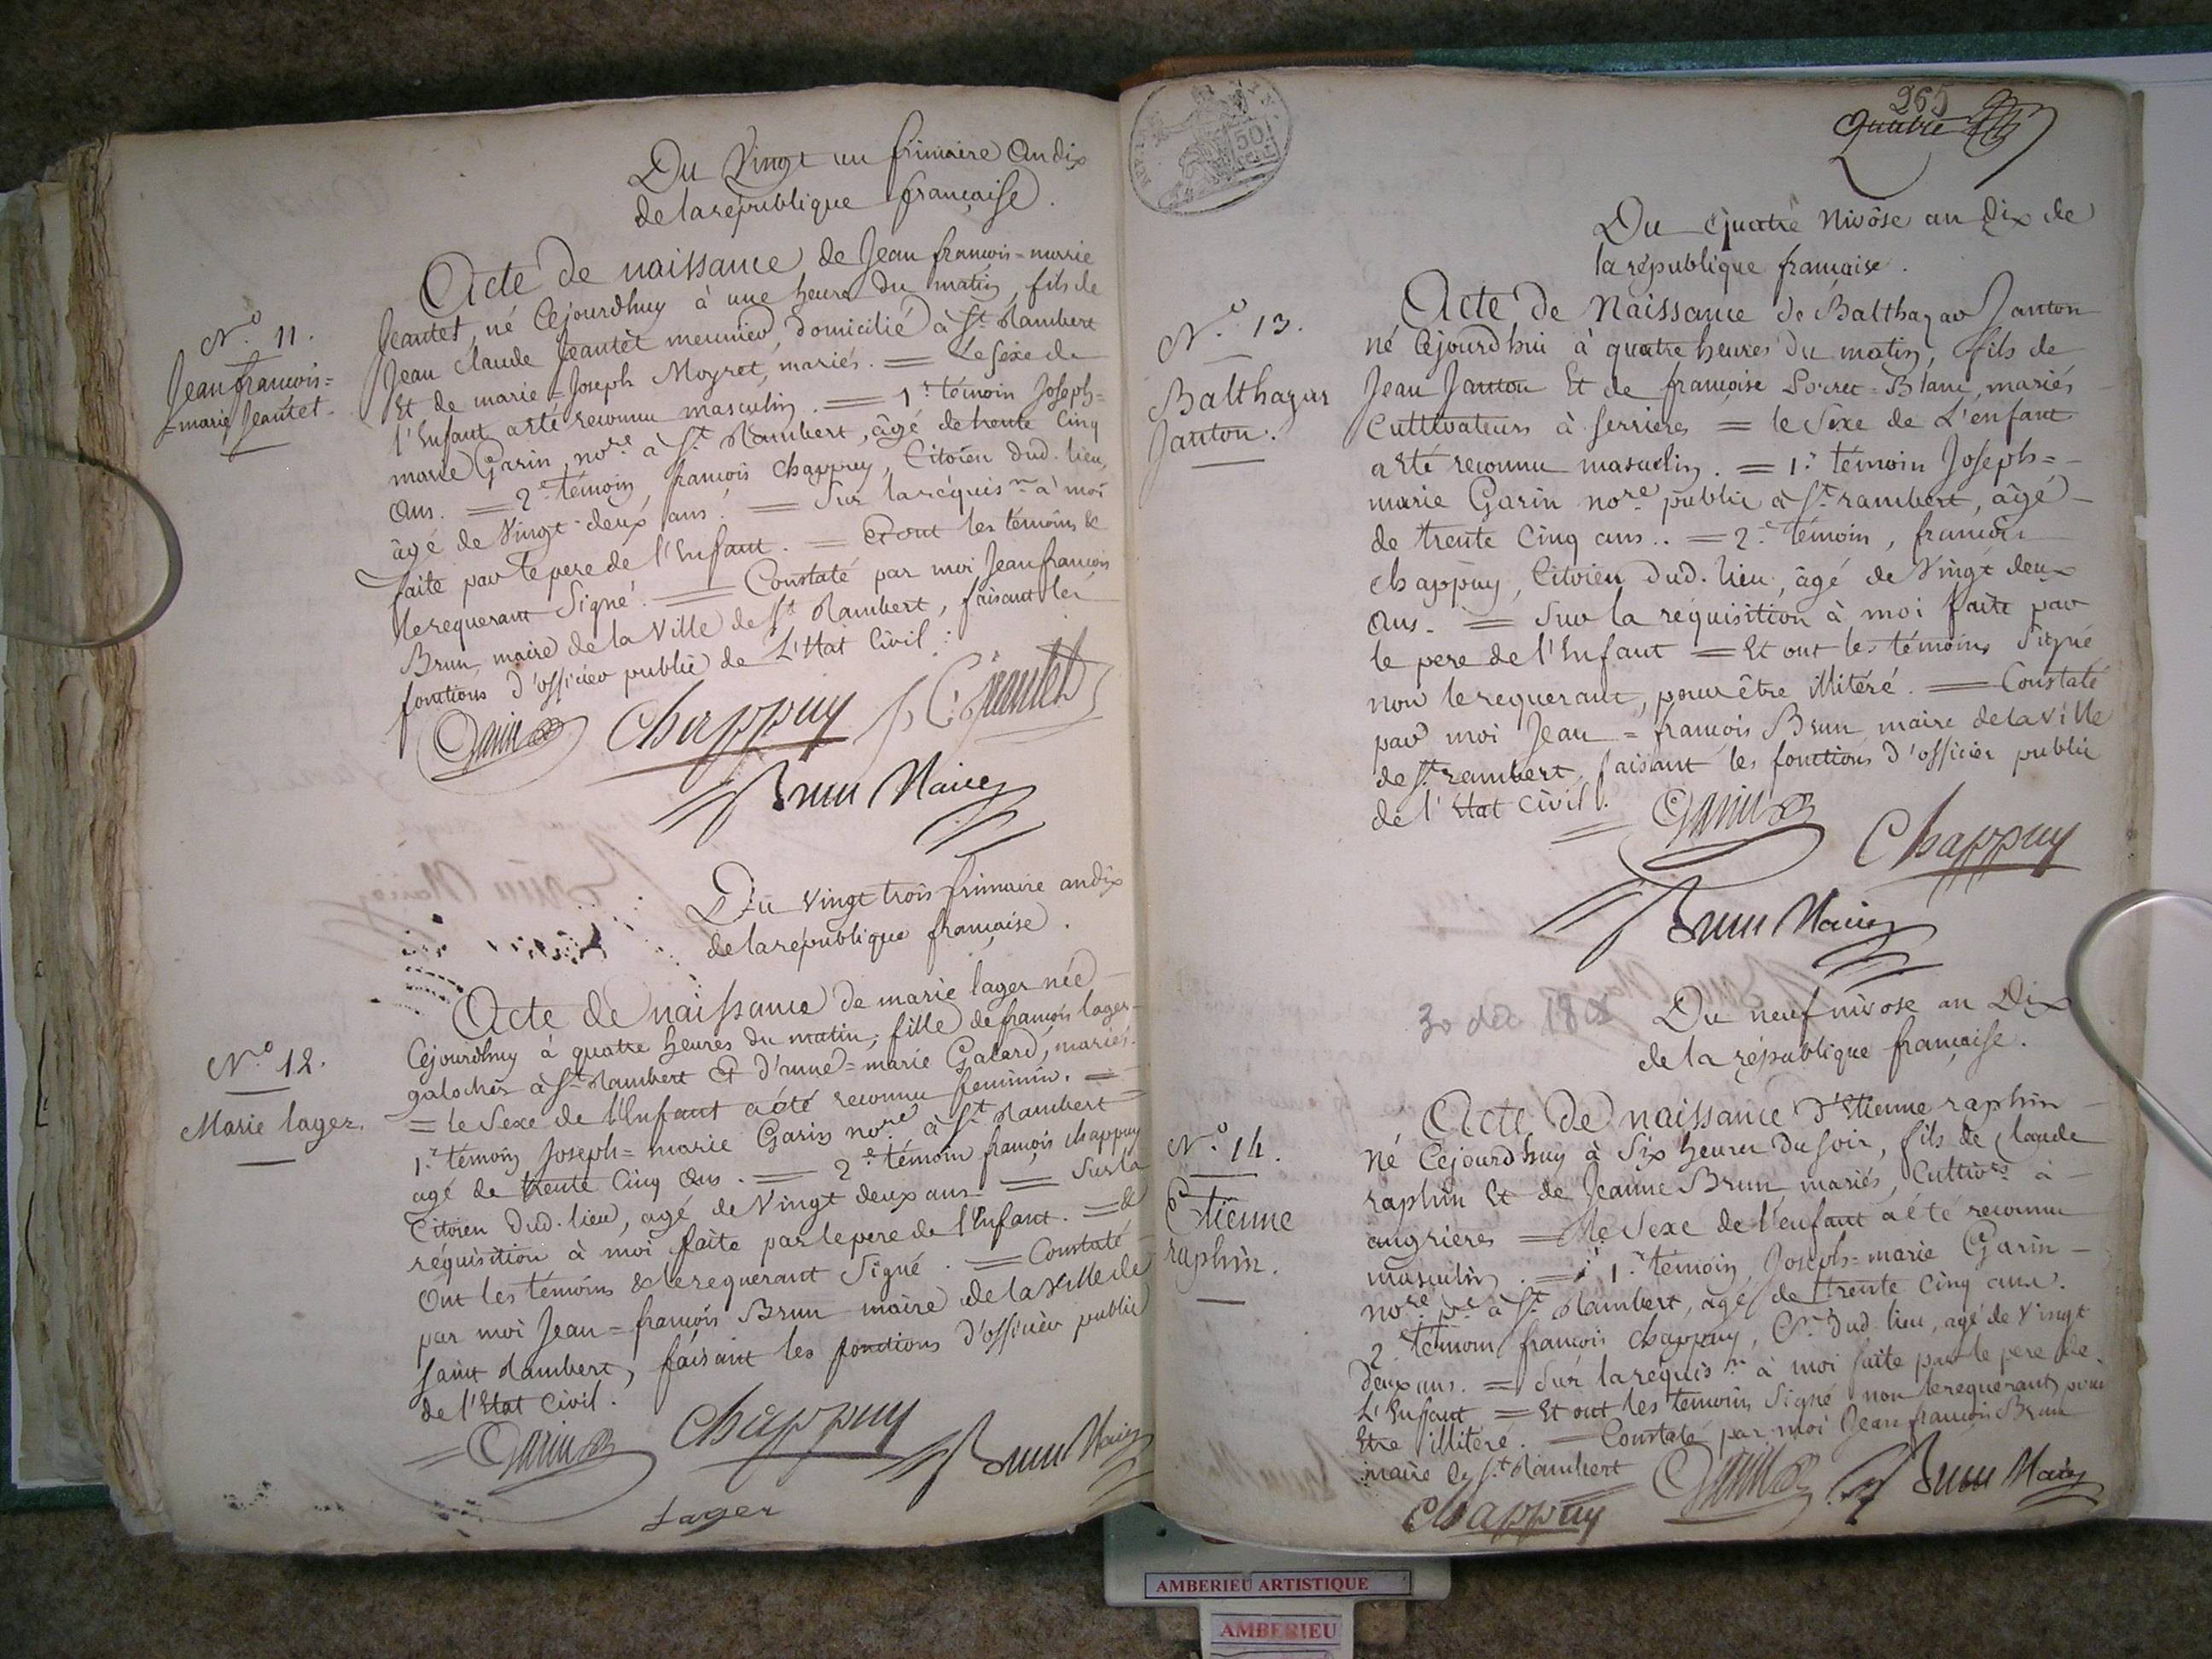 Du Vingt un frimaire an dix
de la république française.
N.o 11.
Jean françois=
=marie Jeantet.
Acte de naissance de Jean françois=marie
Jeantet, né Cejourdhuy à une heure du matin, fils de
Jean Claude Jeantet meunier, domicilié à St. Rambert
Et de marie=Joseph Moyret, mariés. = Le Sexe de
l'Enfant a été reconnu masculin. = 1r. témoin Joseph=
marie Garin nore. à St. Rambert, âgé de trente Cinq
Ans. = 2e. témoin, françois Chappuy, Citoien dud. lieu,
âgé de Vingt-deux ans. = Sur la réquison. à moi
faite par le pere de l'Enfant. = Et ont les témoins &
le requerant Signé. = Constaté par moi Jean françois
Brun, maire de la Ville de St. Rambert, faisant les
fonctions d'officier public de L'Etat Civil.
Garin Chappuy J C Jeantet
Brun Maire
Du Vingt trois frimaire an dix
de la république française.
N.o 12.
Marie lager.
Acte de naissance de marie lager née
Cejourdhuy à quatre heures du matin, fille de françois lager
galochér à St. Rambert Et d'anne=marie Galard, mariés.
= le Sexe de l'Enfant a été reconnu feminin. =
1r. témoin Joseph=marie Garin nore. à St. Rambert
agé de trente Cinq ans. = 2e. témoin françois chappuy
Citoien dud. lieu, agé de Vingt deux ans = Sur la
réquisition à moi faite par le pere de l'Enfant. = &
Ont les témoins & le requerant Signé. = Constaté
par moi Jean=françois Brun maire de la Ville de
Saint Rambert, faisant les fonctions d'officier public
de l'Etat Civil.
Garin Chappuy Brun Maire
Lager
50
265
Quatre
Du quatre Nivôse an Dix de
la république française.
N.o 13.
Balthazar
Janton.
Acte de Naissance de Balthazar Janton
né Cejourd'hui à quatre heures du matin, fils de
Jean Janton Et de françoise Blanc, mariés
Cultivateurs à serrieres = le Sexe de L'enfant
a été reconnu masculin. = 1r. témoin Joseph=
marie Garin nore. public à St. rambert, âgé
de trente Cinq ans.. = 2e. témoin, françois
chappuy, Citoien dud. lieu, âgé de Vingt deux
Ans. = Sur la réquisition à moi faite par
le pere de l'Enfant = Et ont les témoins Signé
non le requerant, pour être illitéré. = Constaté
par moi Jean=françois Brun maire de la Ville
de St. rambert, faisant les fonctions d'officier public
de l'Etat Civil.
Garin Chappuy
Brun Maire
30 dec
Du neuf nivose an Dix
de la république française.
N.o 14.
Etienne
raphin.
Acte de naissance d'Etienne raphin
né Cejourdhuy à Six heures du soir, fils de Claude
raphin Et de Jeanne Brun mariés, Cultivrs. à
angrieres = Le Sexe de l'enfant a été reconnu
masculin. = 1r. témoin, Joseph=marie Garin
nore. pc. à St. Rambert, agé de trente Cinq ans.
2e. témoin françois chappuy, Cn. dud. lieu, agé de Vingt
deux ans. = Sur la réquison. à moi faite par le pere de
L'Enfant = Et ont les temoins Signé non le requerant, pour
Etre illitéré. = Constaté par moi Jean françois Brun
maire de St. Rambert
Chappuy Garin Brun Maire
AMBERIEU ARTISTIQUE
AMBERIEU